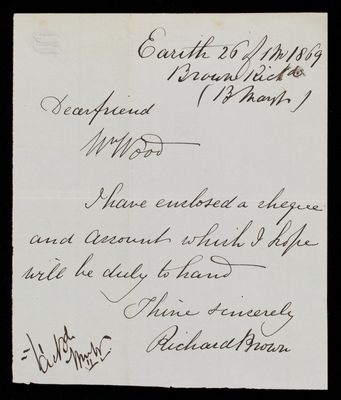 Earith 26 of 1 M 1869
Brown Richd
(B Marsh)
Dear friend
Wm Wood
I have enclosed a cheque
and account which I hope
will be duly to hand
Thine sincerely
Richard Brown